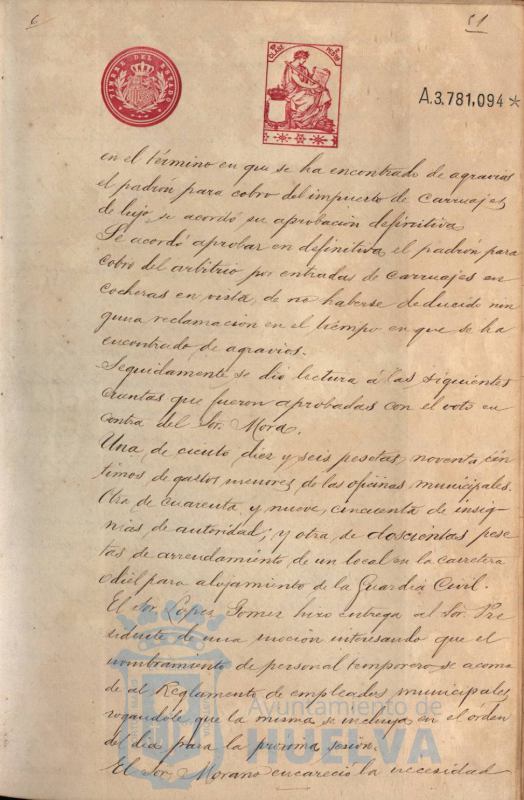 6
51
TIMBRE DEL ESTADO
A.3.781,094 *
en el término en que se ha encontrado de agravios
el padrón para cobro del impuesto de carruajes
de lujo, se acordó su aprobación definitiva.
Se acordó aprobar en definitiva, el padrón para
cobro del arbitrio por entradas de carruajes en
cocheras en vista, de no haberse deducido nin
guna reclamacion en el tiempo en que se ha
encontrado de agravios.
Seguidamente se dio lectura á las siguientes
cuentas que fueron aprobadas con el voto en
contra del Sor. Mora.
Una de ciento diez y seis pesetas, noventa cén
timos de gastos menores de las oficinas municipales.
Otra de cuarenta y nueve, cincuenta de insig
nias de autoridad; y otra, de doscientas pese
tas de arrendamiento de un local en la carretera
Odiel para alojamiento de la Guardia Civil.
El Sor. Lopez Gomez hizo entrega al Sor. Pre
sidente de una moción interesando que el
nombramiento de personal temporero se acomo
de al Reglamento de empleados municipales,
rogandole que la misma se incluya en el órden
del dia para la proxima sesion.
El Sor. Morano encareció la necesidad
Ayuntamiento de
HUELVA